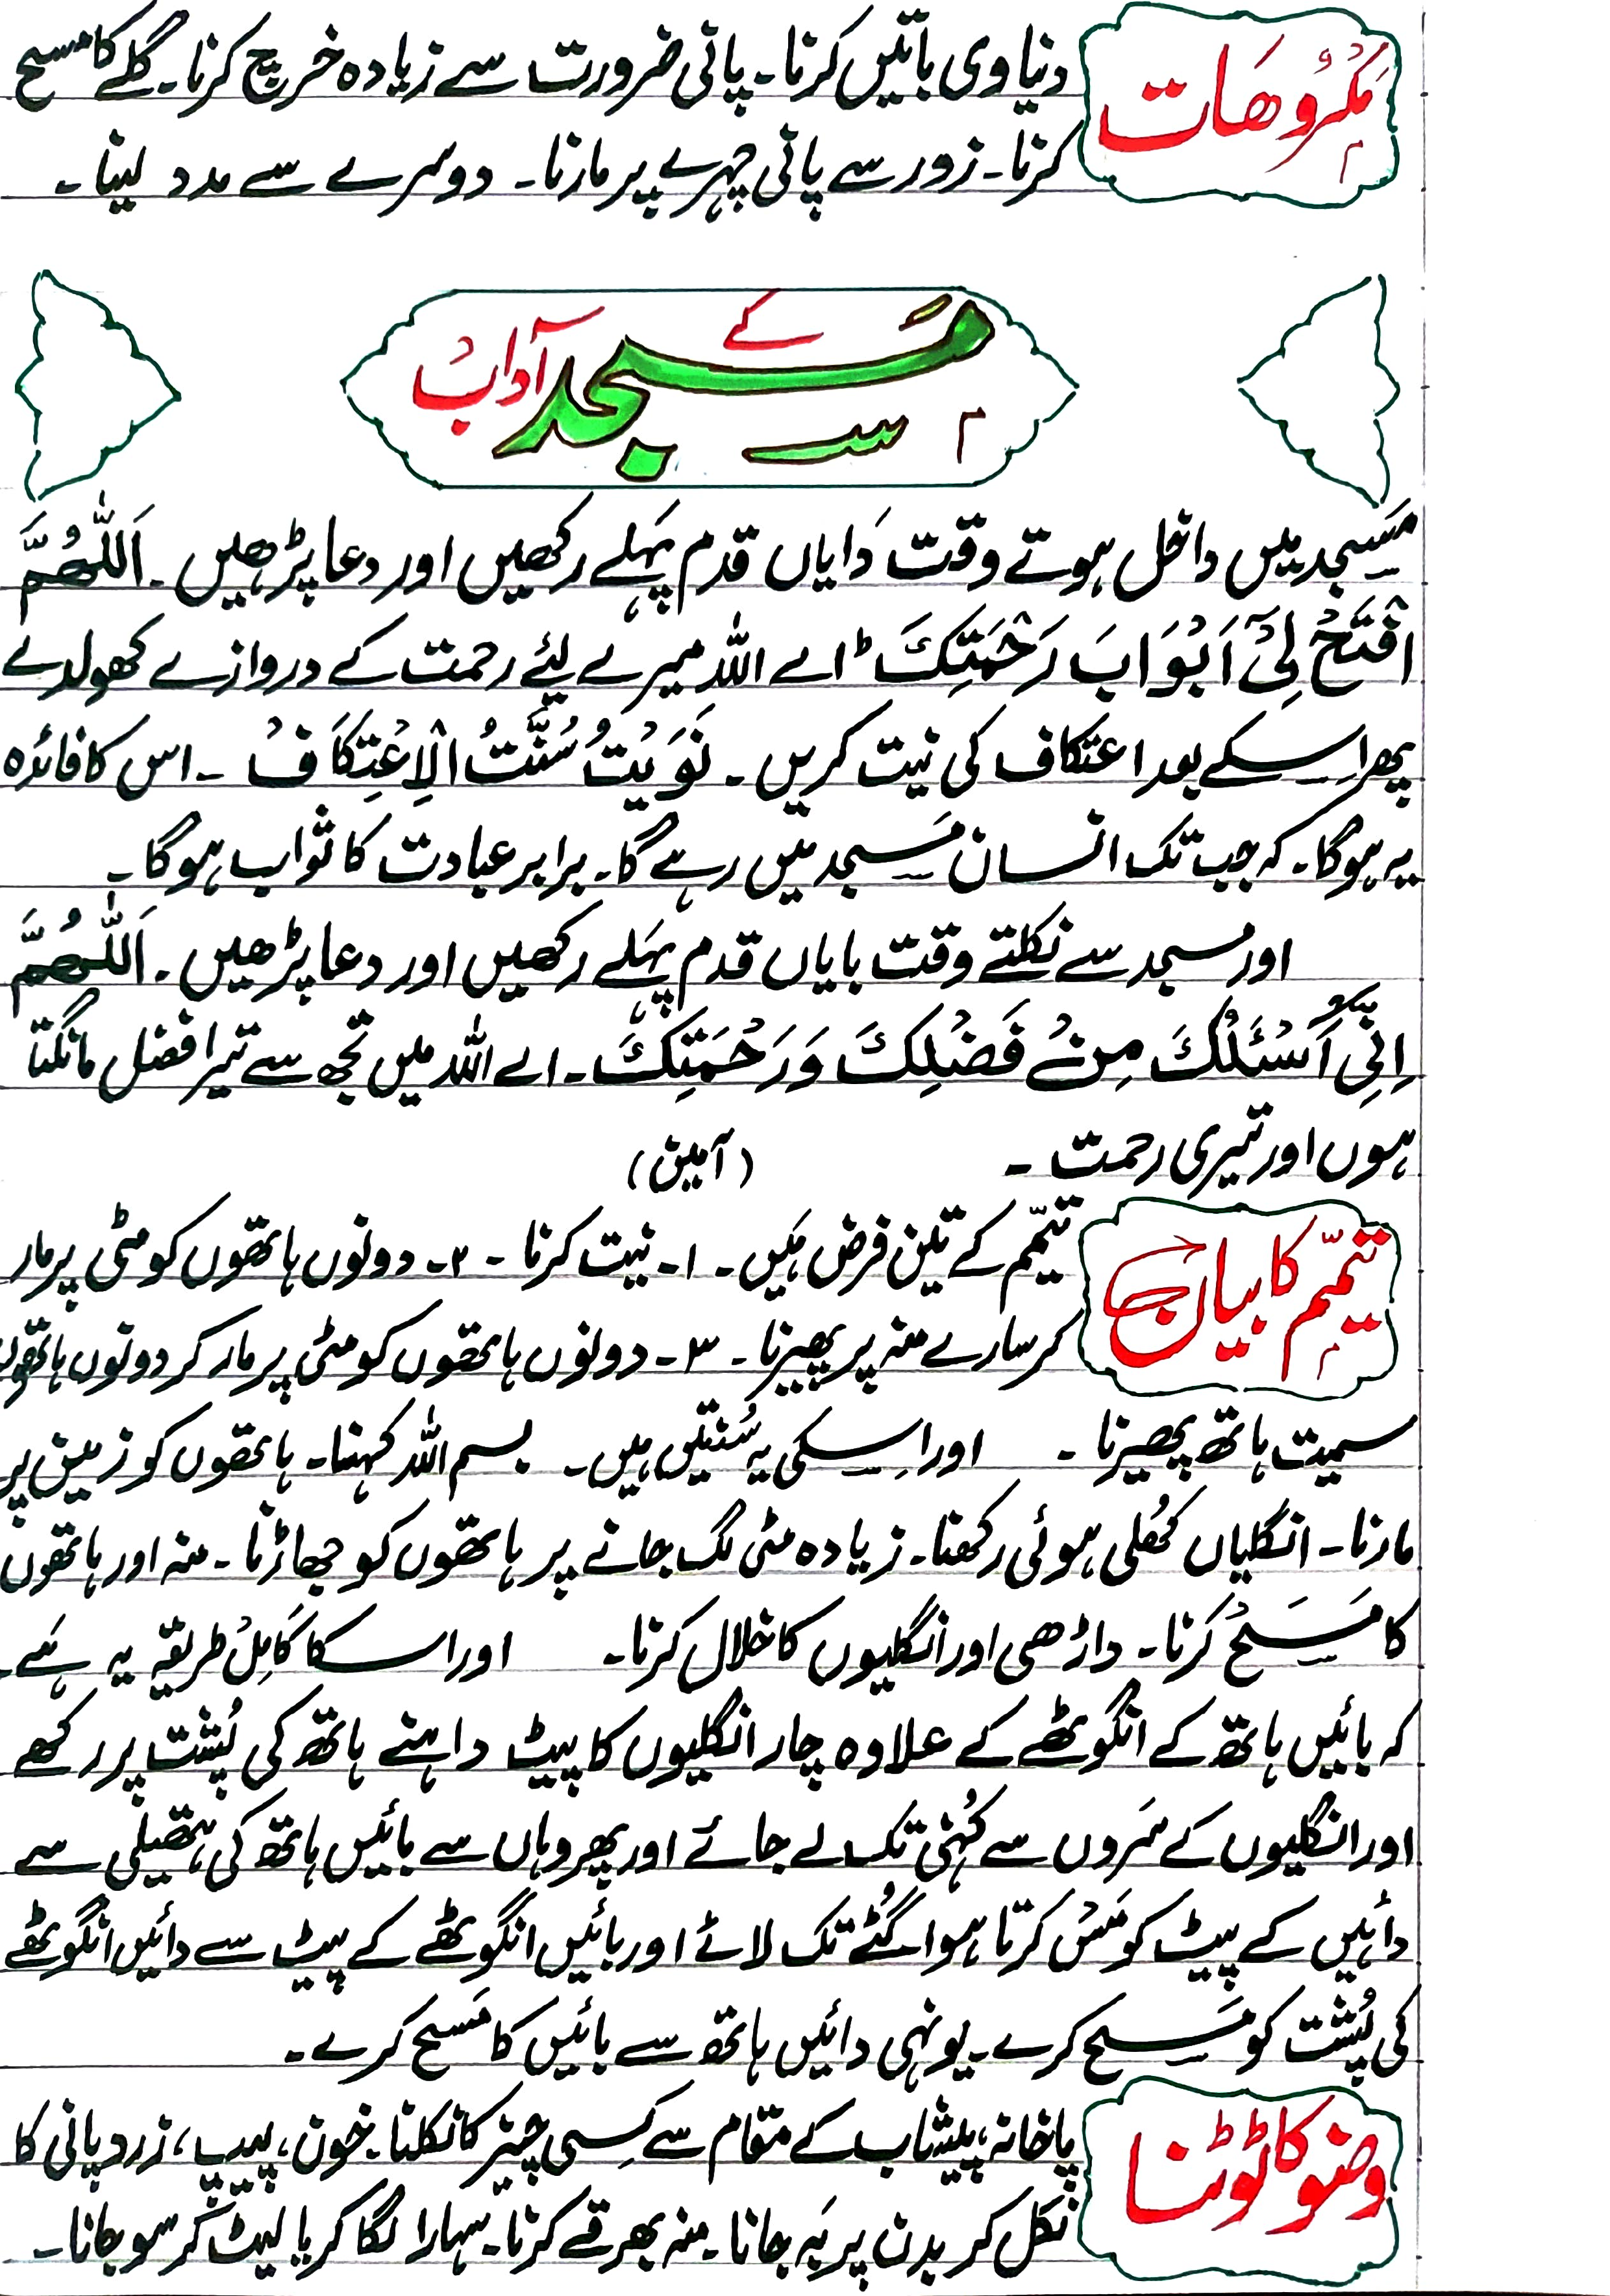 مَکْرُوهَات
دنیاوی باتیں کرنا۔ پانی ضرورت سے زیادہ خرچ کرنا۔ گلے کا مسح
کرنا۔ زور سے پانی چہرے پر مارنا۔ دوسرے سے مدد لینا۔
مسجد کے آداب
مَسجد میں داخل ہوتے وقت دَایاں قدم پہلے رکھیں اور دعا پڑھیں۔ اَللّٰهُمَّ
افْتَحْ لِیْٓ اَبْوَابَ رَحْمَتِكَ ؕ اے اللہ میرے لیئے رحمت کے دروازے کھولدے
پھر اِسکے بعد اعتکاف کی نیت کریں۔ نَوَيْتُ سُنَّتُ الْاِعْتِكَافْ ۔ اس کا فائدہ
یہ ہوگا۔ کہ جب تک انسان مَسجد میں رہے گا۔ برابر عبادت کا ثواب ہوگا۔
اور مسجد سے نکلتے وقت بایاں قدم پہلے رکھیں اور دعا پڑھیں۔ اَللّٰهُمَّ
اِنِّیْ اَسْئَلُكَ مِنْ فَضْلِكَ وَرَحْمَتِكَ ۔ اے اللہ میں تجھ سے تیرا فضل مانگتا
ہوں اور تیری رحمت ۔ (آمین)
تیمّم کا بیان
تیمّم کے تین فرض ہَیں۔ ۱۔ نیت کرنا۔ ۲۔ دونوں ہاتھوں کو مٹی پر مار
کر سارے منہ پر پھیرنا۔ ۳۔ دونوں ہاتھوں کو مٹی پر مار کر دونوں
سمیت ہاتھ پھیرنا۔ اور اِسکی یہ سُنتیں ہیں۔ بسم اللہ کہنا۔ ہاتھوں کو زمین پر
مارنا۔ انگلیاں کُھلی ہوئی رکھنا۔ زیادہ مٹی لگ جانے پر ہاتھوں کو جھاڑنا۔ منہ اور ہاتھوں
کا مَسَحْ کرنا۔ داڑھی اور انگلیوں کا خلال کرنا۔ اور اسکا کَامِلْ طریقہ یہ ہَے۔
کہ بائیں ہاتھ کے انگوٹھے کے علاوہ چار انگلیوں کا پیٹ داہنے ہاتھ کی پُشت پر رکھے
اور انگلیوں کے سَروں سے کُہنی تک لے جائے اور پھر وہاں سے بائیں ہاتھ کی ہتھیلی سے
دائیں کے پیٹ کو مَسْ کرتا ہوا گٹے تک لائے اور بائیں انگوٹھے کے پیٹ سے دائیں انگوٹھے
کی پُشت کو مَسح کرے۔ یونہی دائیں ہاتھ سے بائیں کا مَسح کرے۔
وضو کا ٹوٹنا
پاخانہ، پیشاب کے مقام سے کِسی چیز کا نکلنا۔ خون، پیپ، زرد پانی کا
نکل کر بدن پر بَہ جانا۔ منہ بھر قے کرنا۔ سہارا لگا کر یا لیٹ کر سو جانا۔